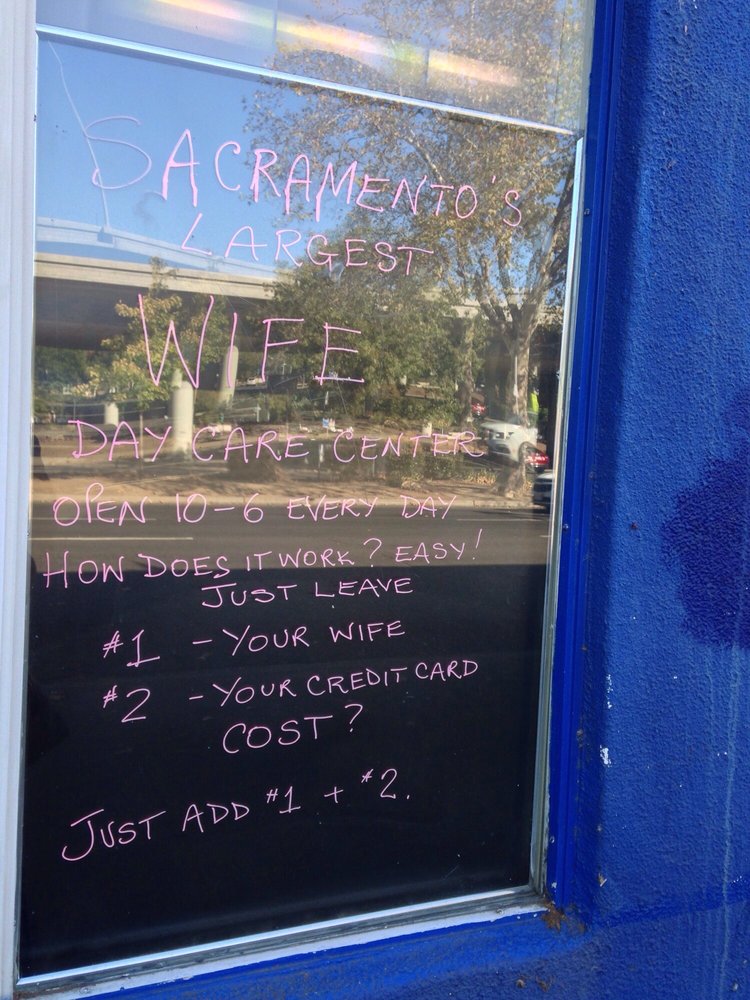 SACRAMENTO'S
LARGEST
WIFE
DAY CARE CENTER
OPEN 10-6 EVERY DAY
HOW DOES IT WORK? EASY!
JUST LEAVE
#1 - YOUR WIFE
#2 - YOUR CREDIT CARD
COST?
JUST ADD #1 + #2.